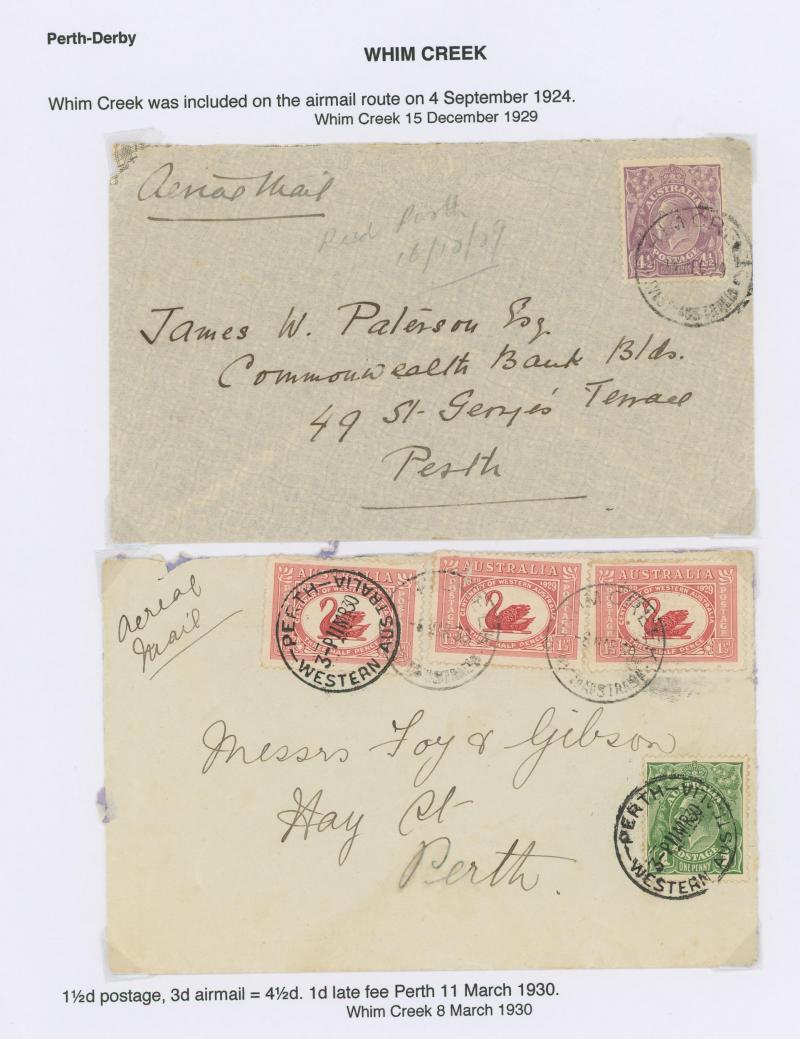 Perth-Derby
WHIM CREEK
Whim Creek was included on the airmail route on 4 September 1924.
Whim Creek 15 December 1929
Aerial Mail
Perth
16/12/29
AUSTRALIA
POSTAGE
4½ 4½
James W. Paterson Esq.
Commonwealth Bank Blds.
49 St. George's Terrace
Perth
Aerial
Mail
AUSTRALIA
POSTAGE
PERTH
3-P 11 MR 30
WESTERN AUSTRALIA
AUSTRALIA
CENTENARY OF WESTERN AUSTRALIA 1929
POSTAGE
THREE HALF PENCE
AUSTRALIA
1929
POSTAGE
Messrs Foy & Gibson
Hay St
Perth.
PERTH
3-P 11 MR 30
WESTERN AUSTRALIA
POSTAGE
ONE PENNY
1½d postage, 3d airmail = 4½d. 1d late fee Perth 11 March 1930.
Whim Creek 8 March 1930